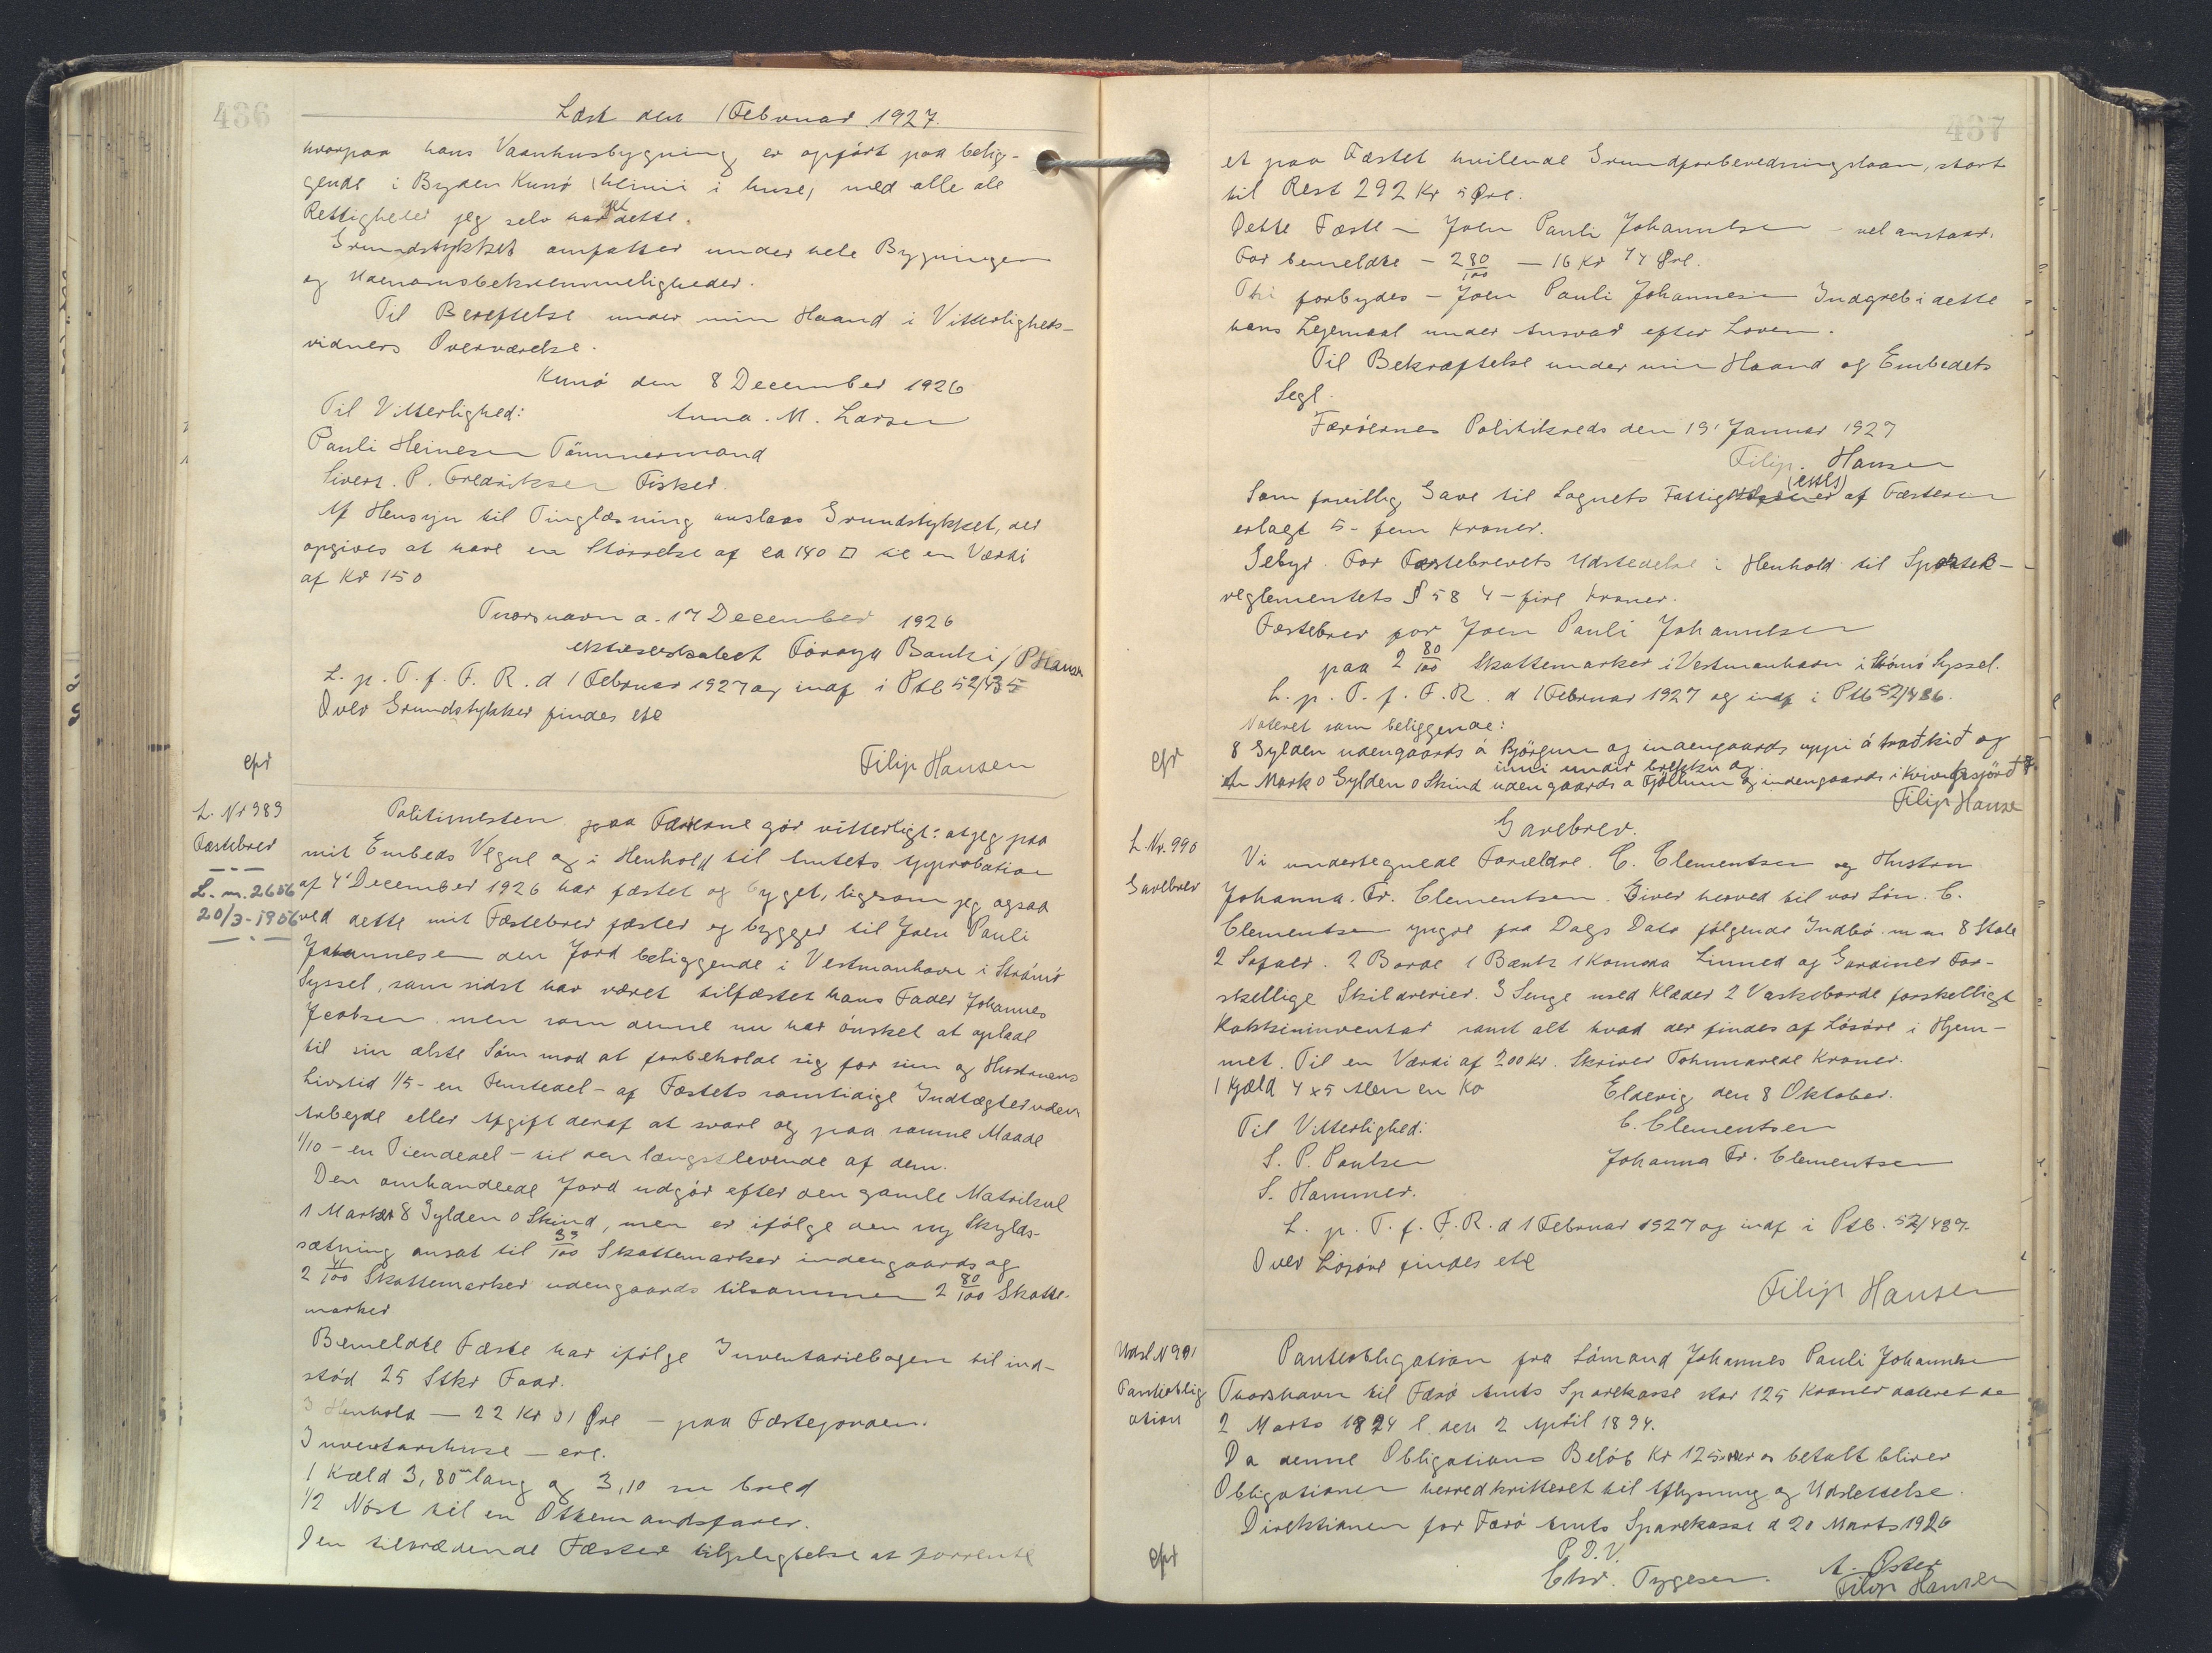 436
Læst den 1 Februar 1927.
hvorpaa hans Vaanhusbygning er opført paa belig-
gende i Bygden Kunø (heimi i huse) med alle de
Rettigheder jeg selv har dette.
Grundstykket omfatter under hele Bygningen
og Udenomsbekvemmeligheder.
Til Bekreftelse under min Haand i Vitterligheds-
vidners Overværelse.
Kunø den 8 December 1926
Til Vitterlighed: Anna. M. Larsen
Pauli Heinesen Tømmermand
Sivert. P. Fredriksen Fisker.
Af Hensyn til Tinglæsning anslaas Grundstykket, der
opgives at have en Størrelse af ca 140 □ til en Værdi
af Kr 150
Thorshavn d. 17 December 1926
Føroya Banki / P Hansen
L. p. T. f. F. R. d 1 Februar 1927 og indf i Ptb 52/435
Over Grundstykket findes etc
Filip Hansen
cfr
L. Nr 989
Fæstebrev
L. nr. 2656
20/3-1956
Politimesteren paa Færøerne gør vitterligt: at jeg paa
mit Embeds Vegne og i Henhold til Amtets Approbation
af 4' December 1926 har fæstet og bygget, ligesom jeg ogsaa
ved dette mit Fæstebrev fæster og bygger til Joen Pauli
Johannesen den Jord beliggende i Vestmanhavn i Strømø
Syssel, som sidst har været tilfæstet hans Fader Johannes
Jcobsen men som denne nu har ønsket at oplade
til sin ælste Søn mod at forbeholde sig for sin og Hustruens
Livstid 1/5 - en Femtedel - af Fæstets samtidige Indtægter uden
Arbejde eller Afgift deraf at svare og paa samme Maade
1/10 - en Tiendedel - til den længstlevende af dem.
Den omhandlede Jord udgør efter den gamle Matrikul
1 Marker 8 Gylden 0 Skind, men er ifølge den ny Skylds-
sætning ansat til 39/100 Skattemarker indengaards og
2 41/100 Skattemarker udengaards tilsammen 2 80/100 Skatte-
marker
Bemeldte Fæste har ifølge Inventariebogen til ind-
stød 25 Stkr Faar.
I Henhold - 22 Kr 01 Øre - paa Fæstejorden.
Inventarhuse - ere.
1 Kæld 3,80 m lang og 3,10 m bred
1/2 Nøst til en Ottemandsfarer.
Den tiltrædende Fæster tilpligtelse at forrente
437
et paa Fæstet hvilende Grundforbedringslaan, stort
til Rest 292 Kr 5 Øre.
Dette Fæste - Joen Pauli Johannesen - vel anstaar.
For bemeldte - 2 80/100 - 16 Kr 74 Øre.
Thi forbydes - Joen Pauli Johannesen Indgreb i dette
hans Lejemaal under Ansvar efter Loven.
Til Bekræftelse under min Haand og Embedets
Segl.
Færøernes Politikreds den 19' Januar 1927
Filip. Hansen
Som frivillig Gave til Sognets Fattig af Fæsteren
erlagt 5 - fem Kroner.
Gebyr. For Fæstebrevets Udstedelse i Henhold til Sportel-
reglementets § 58 4 - fire Kroner.
Fæstebrev for Joen Pauli Johannesen
paa 2 80/100 Skattemarker i Vestmanhavn i Strømø Syssel.
L. p. T. f. F. R. d 1 Februar 1927 og indf i Ptb 52/486.
Noteret som beliggende:
cfr
8 Gylden udengaards á Bjørgum og indengaards uppi á traðkið og
inni undir brekku og
en Mark 0 Gylden 0 Skind udengaards a Fjøllum og indengaards i
Filip Hansen
L. Nr. 990
Gavebrev
Gavebrev.
Vi undertegnede Forældre. C. Clementsen og Hustru
Johanna. Fr. Clementsen. Giver herved til vor Søn. C.
Clementsen yngre fra Dags Dato følgende Indbo m m 8 Stole
2 Sofaer. 2 Borde 1 Bænk 1 Komoda Linned og Gardiner For-
skellige Skildrerier. 3 Senge med Klæder 2 Vaskeborde forskelligt
Køkkininventar samt alt hvad der findes af Løsøre i Hjem-
met. Til en Værdi af 200 Kr. Skriver Tohundrede Kroner.
1 Kjæld 4 x 5 Alen en Ko
Eldevig den 8 Oktober.
Til Vitterlighed: C. Clementsen
S. P. Poulsen Johanna Fr. Clementsen
S. Hammer.
L. p. T. f. F. R. d 1 Februar 1927 og indf i Ptb. 52/437.
Over Løsøre findes etc
Filip Hansen
Udsl N 991
Pantoblig
ation
Panteobligation fra Sømand Johannes Pauli Johannesen
Thorshavn til Færø Amts Sparekasse stor 125 Kroner dateret de
2 Marts 1894 l. den 2 April 1894.
Da denne Obligations Beløb Kr 125 er os betalt bliver
Obligationen herved kvitteret til Aflysning og Udslettelse.
Direktionen for Færø Amts Sparekasse d 20 Marts 1926
P. D. V.
Chr. Tygesen. A. Øster
Filip Hansen
cfr